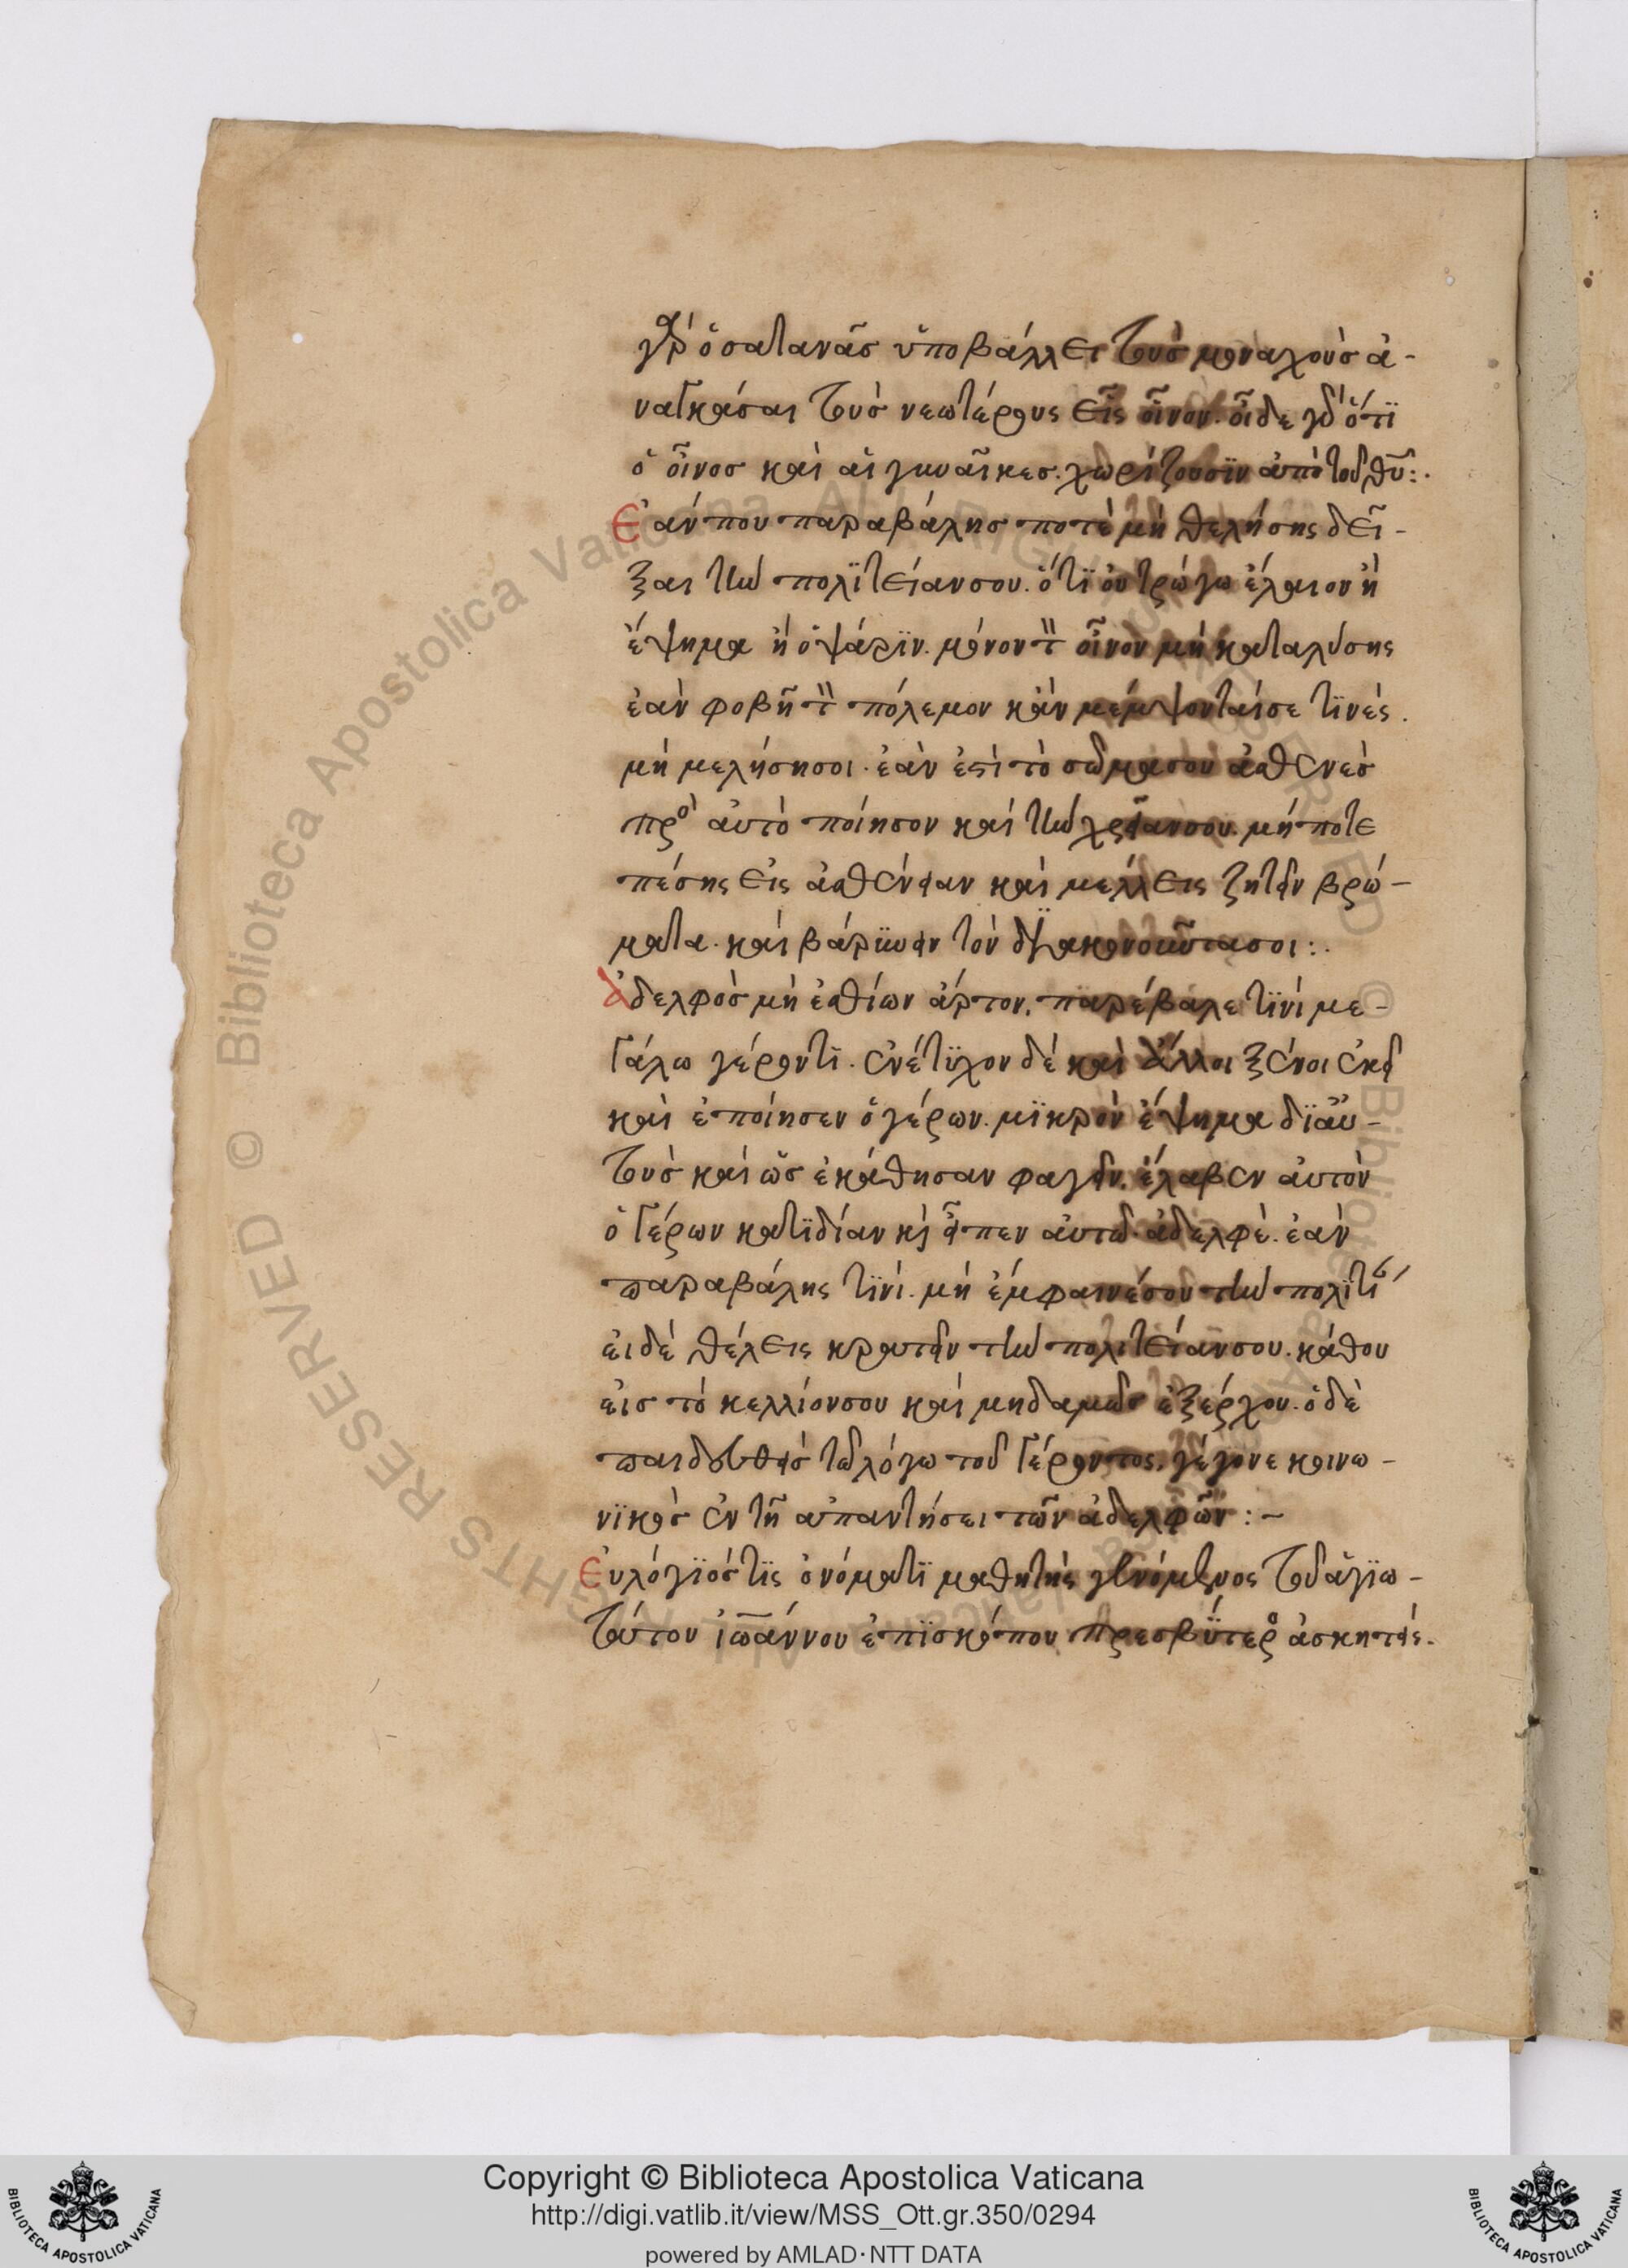 γὰρ ὁ σατανᾶσ ὑποβάλλει τοὺσ μοναχοὺσ ἀ-
ναγκάσαι τοὺσ νεωτέρους εἰς οἶνον. οἶδε γὰρ ὅτϊ
ὁ οἶνοσ καὶ αἱ γυναῖκεσ. χωρίζουσϊν ἀπὸ τοῦ θῦ:.
Ἐάν που παραβάλησ ποτὲ μὴ θελήσης δεῖ-
ξαι τὴν πολϊτείαν σου. ὅτϊ οὐ τρώγω ἔλαιον ἢ
ἕψημα ἢ ὀψάρϊν. μόνον τὸν οἶνον μὴ καταλύσης
ἐὰν φοβῆ τὸν πόλεμον κἂν μέμψονταί σε τϊνές.
μὴ μελήση σοι. ἐὰν ἐστὶ τὸ σῶμα σου ἀσθενὲσ
πρὸσ αὐτὸ ποίησον καὶ τὴν χρείαν σου. μήποτε
πέσης εἰς ἀσθένειαν καὶ μέλλεις ζητεῖν βρώ-
ματα. καὶ βάρϋνειν τὸν δϊακονοῦντα σοι:.
Ἀδελφὸσ μὴ ἐσθίων ἄρτον. παρέβαλε τϊνὶ με-
γάλω γέροντϊ. ἐνέτϋχον δὲ καὶ ἄλλοι ξένοι ἐκεῖ
καὶ ἐποίησεν ὁ γέρων. μϊκρὸν ἕψημα δϊ αὐ-
τοὺσ καὶ ὡσ ἐκάθησαν φαγεῖν. ἔλαβεν αὐτὸν
ὁ γέρων κατϊδίαν κὶ εἶπεν αὐτῶ. ἀδελφὲ. ἐὰν
παραβάλης τϊνί. μὴ ἐμφαινέσου τὴν πολϊτϊ
εἰ δὲ θέλεις κρατεῖν τὴν πολιτείαν σου. κάθου
εἰσ τὸ κελλίον σου καὶ μηδαμῶσ ἐξέρχου. ὁ δὲ
παιδευθεὶσ τῶ λόγω τοῦ γέροντος. γέγονε κοινω-
νϊκὸσ ἐν τῆ ἀπαντήσει τῶν ἀδελφῶν:-
Εὐλόγϊόσ τϊς ὀνόματϊ μαθητὴς γενόμενος τοῦ ἁγϊω-
τάτου ἰωάννου ἐπϊσκόπου πρεσβϋτερος ἀσκητής.
Copyright © Biblioteca Apostolica Vaticana
http://digi.vatlib.it/view/MSS_Ott.gr.350/0294
powered by AMLAD·NTT DATA
BIBLIOTECA APOSTOLICA VATICANA
BIBLIOTECA APOSTOLICA VATICANA